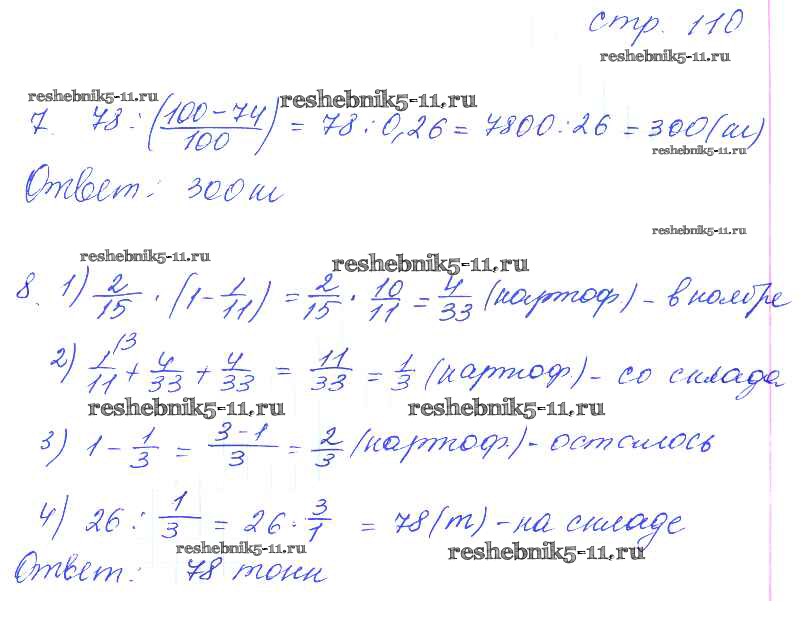 стр. 110
reshebnik5-11.ru
reshebnik5-11.ru reshebnik5-11.ru
7. 78 : ((100-74)/100) = 78 : 0,26 = 7800 : 26 = 300 (м)
reshebnik5-11.ru
Ответ: 300 м
reshebnik5-11.ru
reshebnik5-11.ru reshebnik5-11.ru
8. 1) 2/15 · (1 - 1/11) = 2/15 · 10/11 = 4/33 (картоф.) - в ноябре
2) 1/11 \3 + 4/33 + 4/33 = 11/33 = 1/3 (картоф.) - со склада
reshebnik5-11.ru reshebnik5-11.ru
3) 1 - 1/3 = (3-1)/3 = 2/3 (картоф.) - осталось
4) 26 : 1/3 = 26 · 3/1 = 78 (т) - на складе
reshebnik5-11.ru reshebnik5-11.ru
Ответ: 78 тонн